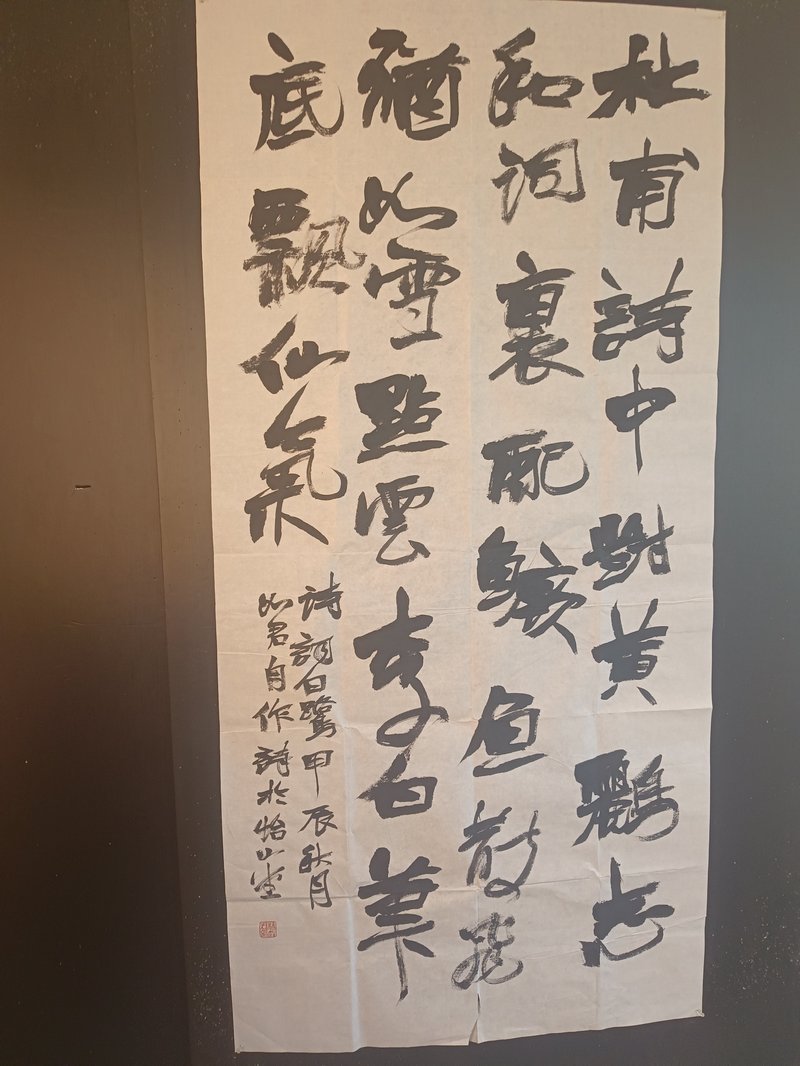 杜甫詩中黄鸝志
和詞裏配鱖魚散飛
猶如雪點雲李白筆
底飄仙氣
詩詞白鷺甲辰秋月
如君自作詩於怡山堂